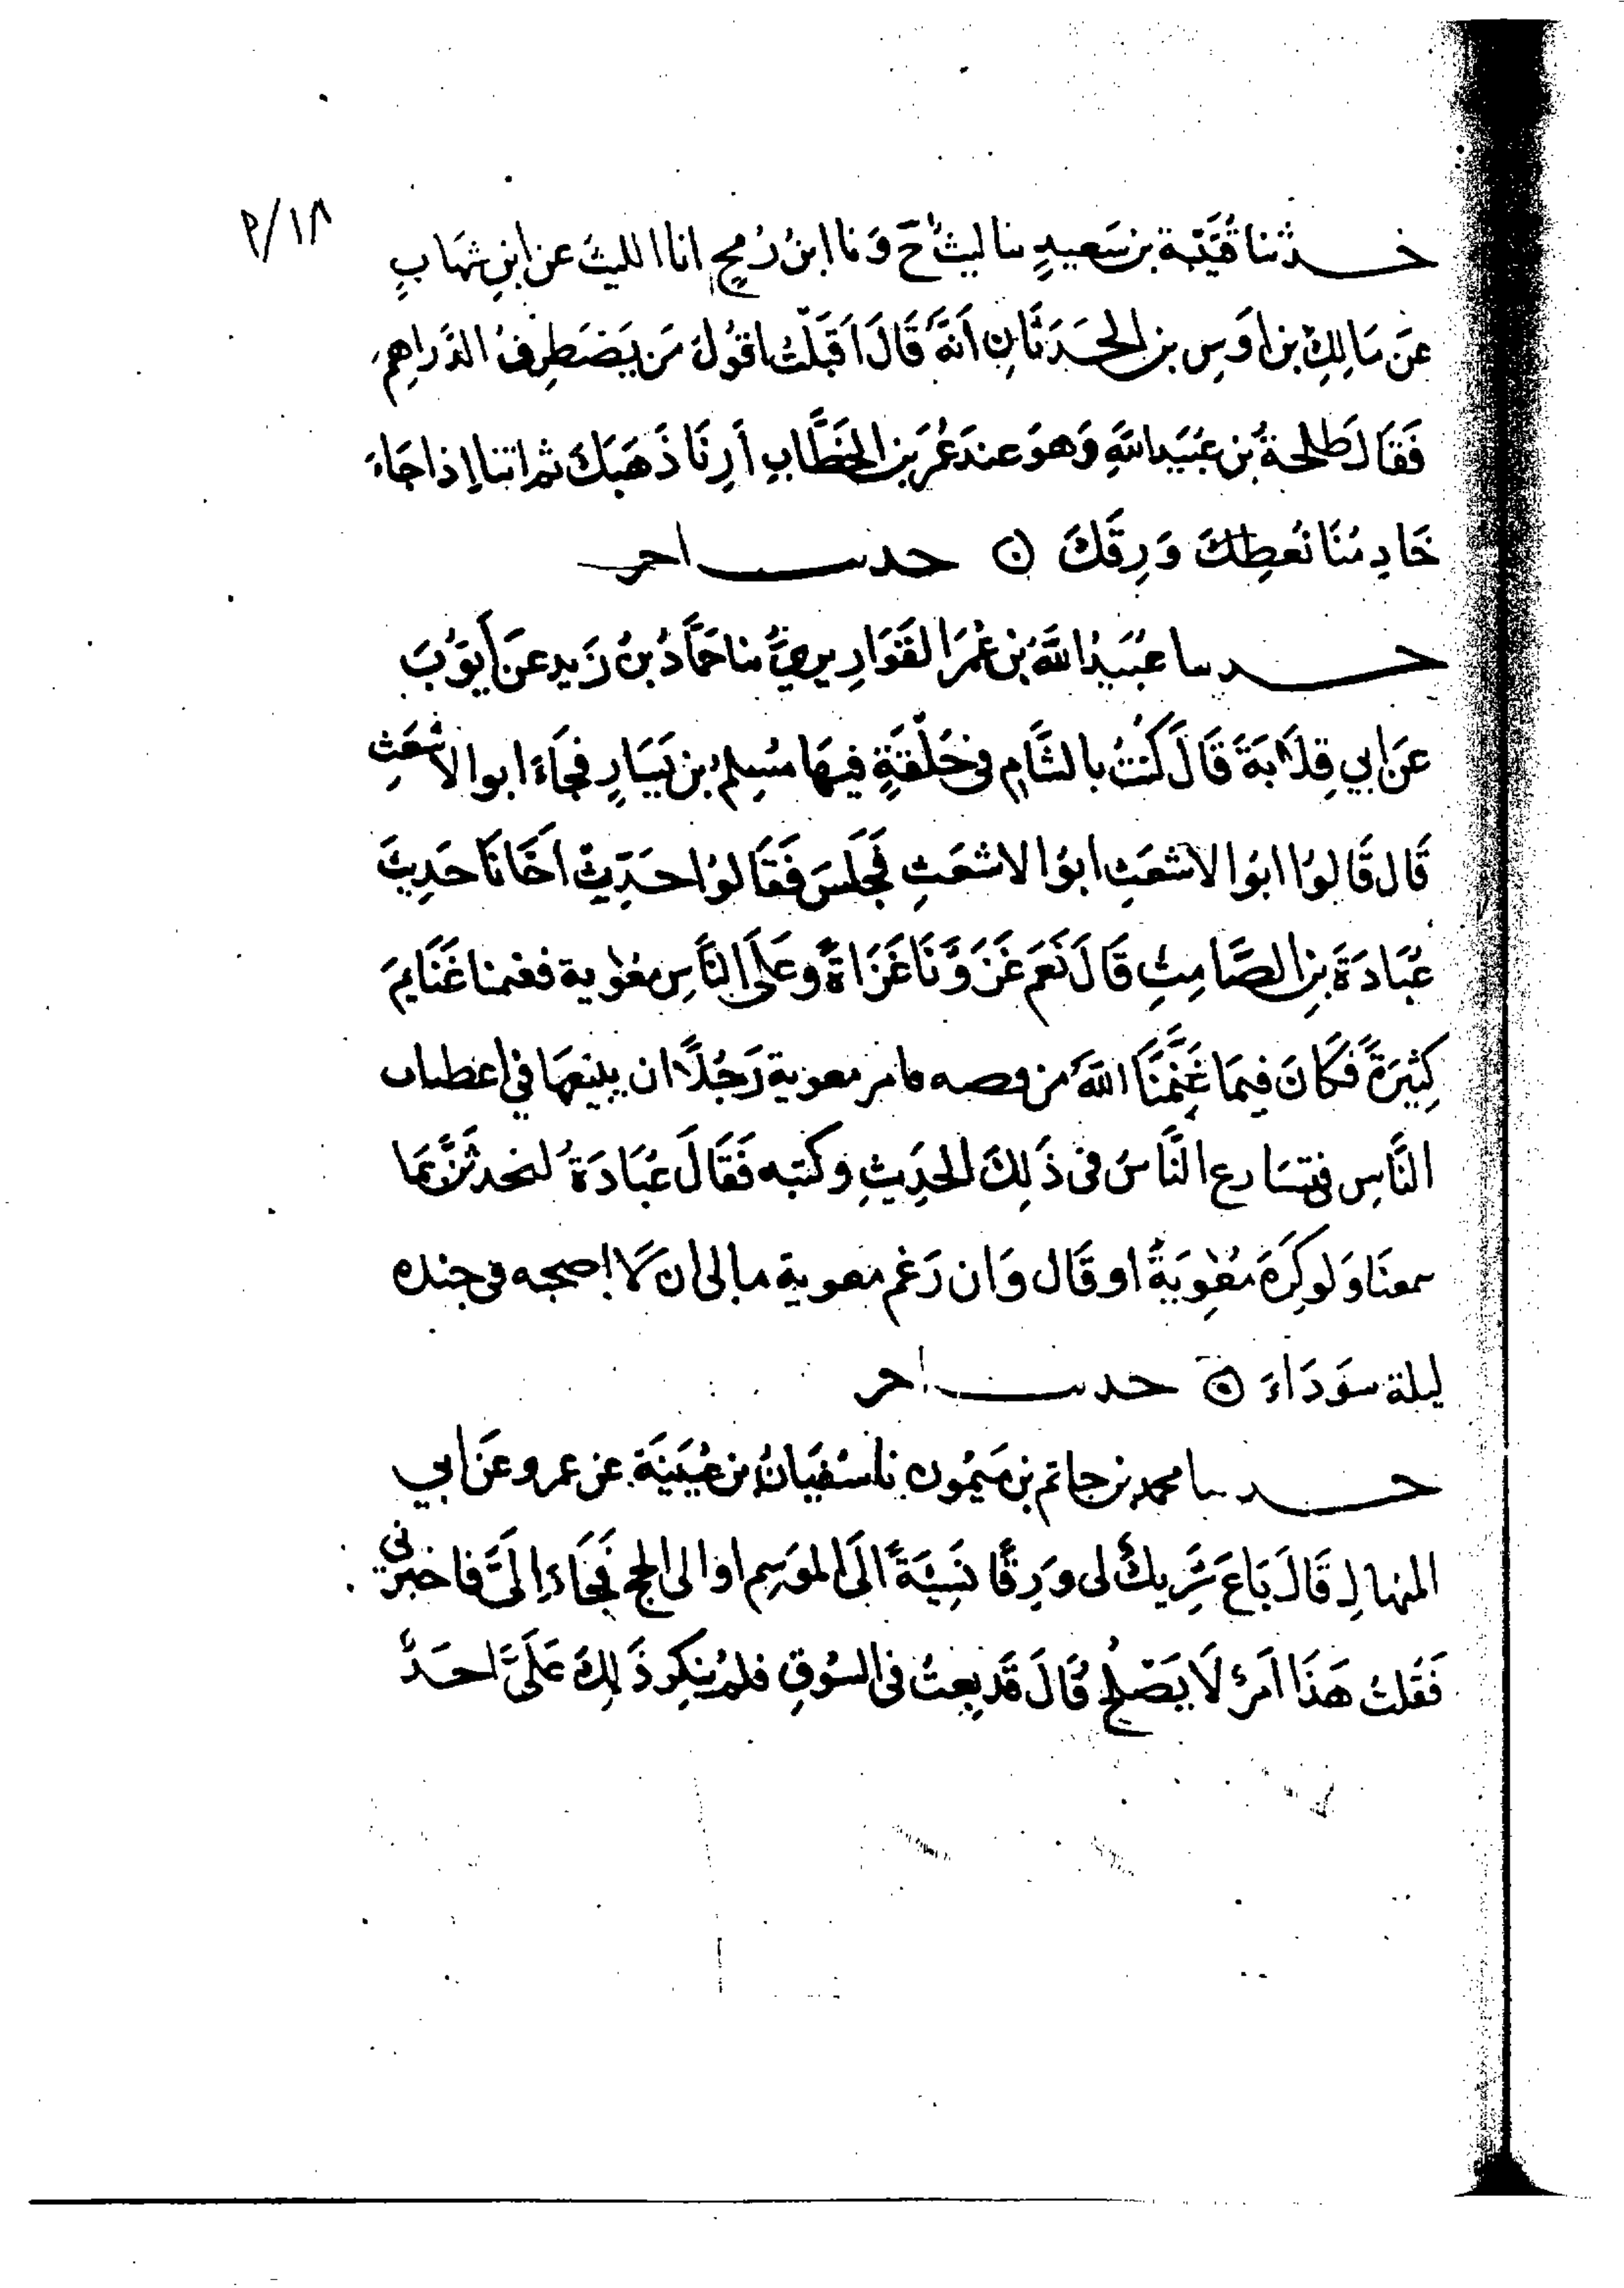 ١٨/٢
حدثنا قُتَيْبَة بن سَعيدٍ نا ليثٌ ح وَنا ابنُ رُمحٍ انا الليث عن ابنِ شهَابٍ
عَن مَالِكِ بن اَوَسِ بن الحَدَثَانِ اَنَّهُ قَالَ اَقبَلْتُ اقوُلُ مَن يَضطَرِفُ الدَّرَاهِمَ
فَقَالَ طَلحةُ بن عُبَيدِ اللَّهِ وَهوَ عند عُمَرَ بن الخطَّابِ اَرِنَا ذَهَبَكَ ثم اتنا إذا جَاءَ
خَادِمُنَا نُعطِكَ وَرِقَكَ ۞ حدىث اخر
حدىىا عُبَيدُ اللَّهِ بن عُمَرَ القَوَارِيريُّ نا حَمَّادُ بنُ زَيدٍ عَن أَيوُّبَ
عَن ابي قِلَابَةَ قَالَ كُنتُ بالشَّامِ في حَلْقَةٍ فيهَا مُسِلمُ بن يَسَارٍ فجَاءَ ابوا الاشعَثِ
قَال قَالوُا ابوُا الاشعَثِ ابوُا الاشعَثِ فَجَلَسَ فَقَالوُا حَدِّث اَخَانَا حَدِيثَ
عُبَادَةَ بنِ الصَّامِتِ قَالَ نَعَم غَزَوْنَا غَزَاةً وعَلَى النَّاسِ معٰوية فغنمنا غَنَايمَ
كِثيَرةً فَكَانَ فيمَا غَنِمْنَا اللَّهُ من فضه فامر معوية رَجُلًا ان يبيعَهَا في اعطيات
النَّاسِ فتسَارع النَّاسُ في ذَلِكَ الحَدِيثِ وكتبه فَقَالَ عُبَادَةُ لنحدثَنَّ بمَا
سمعنَا وَلو كَرِهَ مُعٰوِيَةُ او قَال وَان رَغم معوية ما ابالى ان لَا اصحبه في جنده
ليلة سَودَاءَ ۞ حدىث اخر
حدىىا محمد بن حاتم بن مَيمُونٍ نا سُفيَانُ بن عُيَينَةَ عن عمرو عَن ابي
المنهالِ قَالَ بَاعَ شَرِيكٌ لى وَرِقًا نَسِيَّةً اَلىَ الموَسِم او الى الحج فَجَاءَ إِلىَّ فاخبرنى
فَقُلتُ هَذَا اَمرٌ لَا يَصْلحُ قَالَ قَد بِعتُ في السُوقِ فلم يُنكِر ذَلِكَ عَلَيَّ احَدٌ